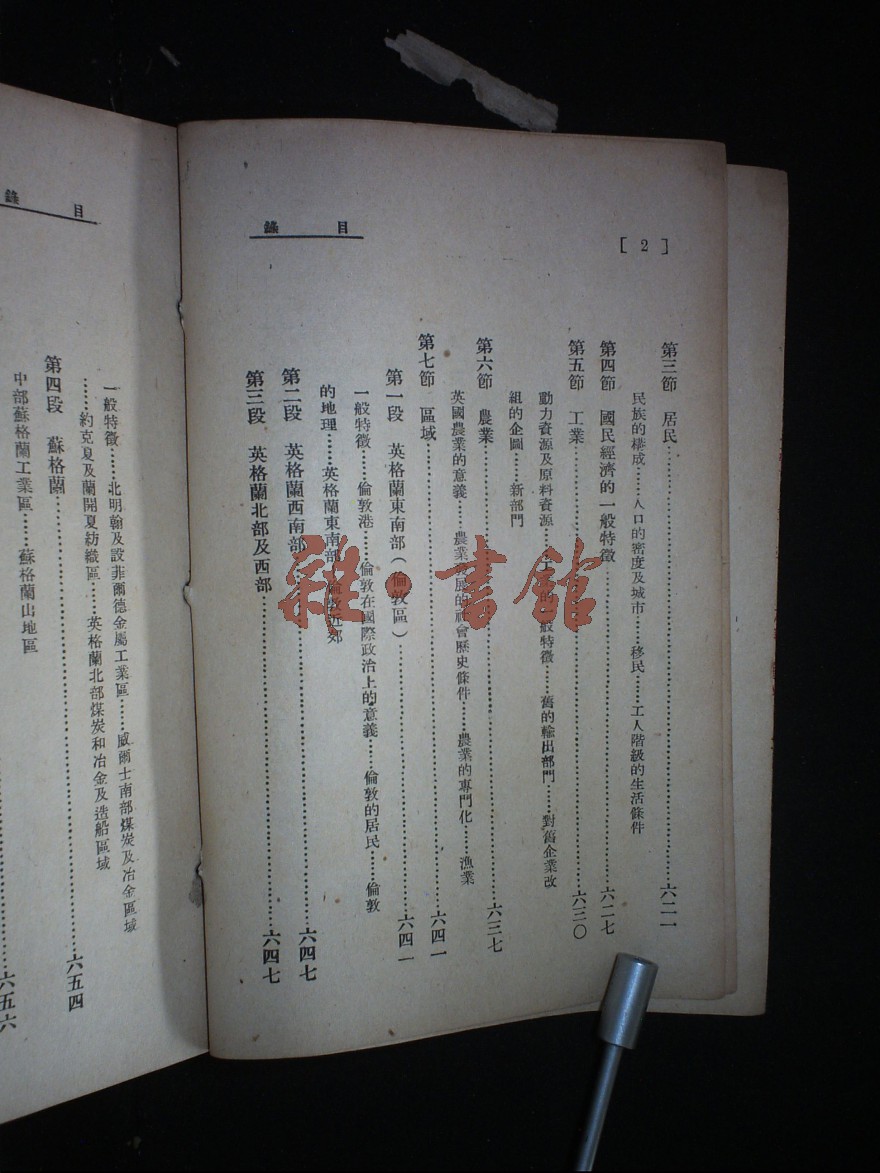 目錄
[2]
第三節 居民……六二一
民族的構成……人口的密度及城市……移民……工人階級的生活條件
第四節 國民經濟的一般特徵……六二七
第五節 工業……六三〇
動力資源及原料資源……工業的一般特徵……舊的輸出部門……對舊企業改
組的企圖……新部門
第六節 農業……六三七
英國農業的意義……農業發展的社會歷史條件……農業的專門化……漁業
第七節 區域……六四一
第一段 英格蘭東南部(倫敦區)……六四一
一般特徵……倫敦港……倫敦在國際政治上的意義……倫敦的居民……倫敦
的地理……英格蘭東南部倫敦近郊
第二段 英格蘭西南部……六四七
第三段 英格蘭北部及西部……六四七
目錄
一般特徵……北明翰及設菲爾德金屬工業區……威爾士南部煤炭及冶金區域
……約克夏及蘭開夏紡織區……英格蘭北部煤炭和冶金及造船區域
第四段 蘇格蘭……六五四
中部蘇格蘭工業區……蘇格蘭山地區
……六五六
雜·書館